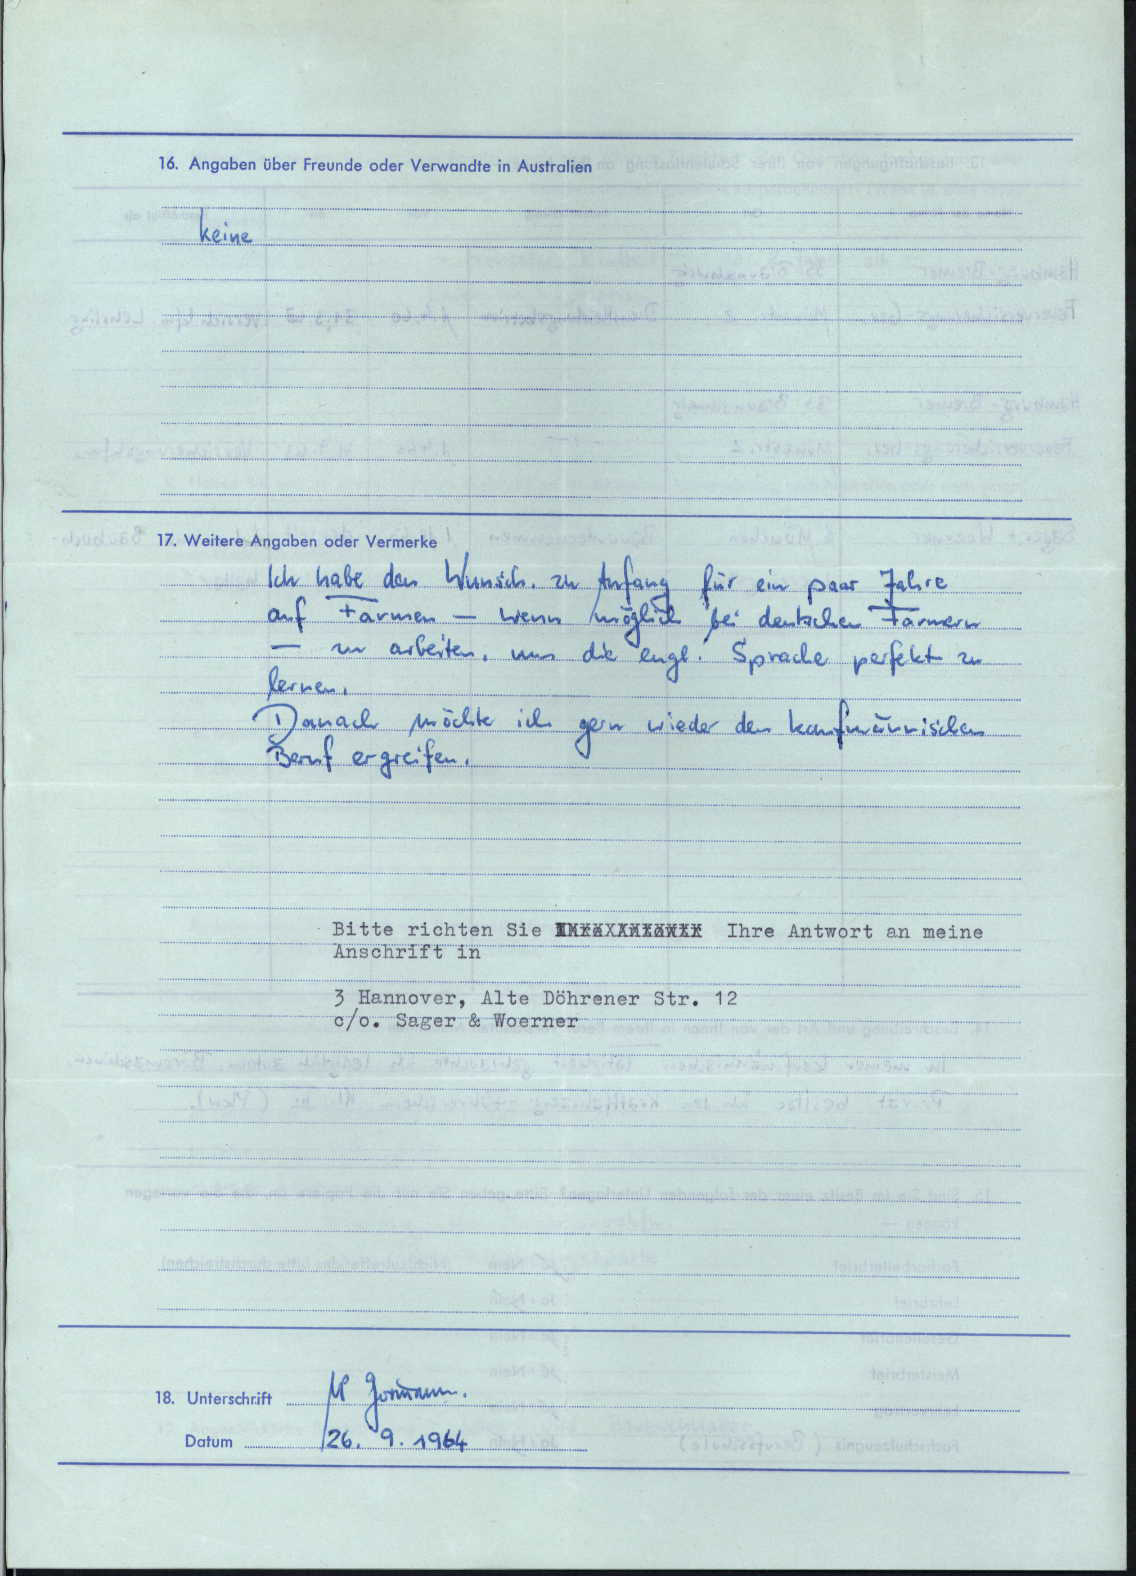 16. Angaben über Freunde oder Verwandte in Australien
keine
17. Weitere Angaben oder Vermerke
Ich habe den Wunsch, zu Anfang für ein paar Jahre
auf Farmen — wenn möglich bei deutschen Farmern
— zu arbeiten, um die engl. Sprache perfekt zu
lernen.
Danach möchte ich gern wieder den kaufmännischen
Beruf ergreifen.
Bitte richten Sie Ihre Antwort an meine
Anschrift in
3 Hannover, Alte Döhrener Str. 12
c/o. Sager & Woerner
18. Unterschrift
Datum 26. 9. 1964